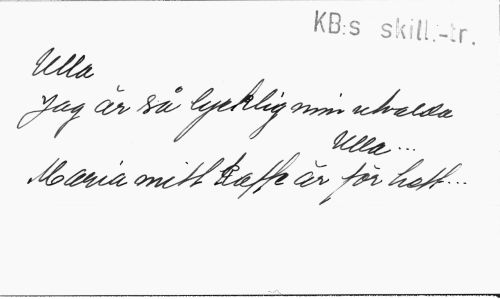 KB:s skill.-tr.
Ulla
Jag är så lycklig min utvalda
Ulla...
Maria mitt kaffe är för hett...